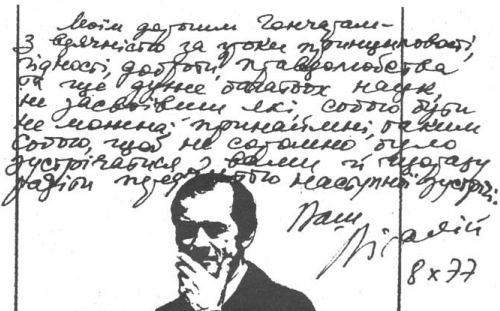 Моїм дорогим Гончарам —
з вдячністю за уроки принциповості,
гідності, доброти, правдолюбства
та ще дуже багатьох наук,
не засвоївши які собою бути
не можна, принаймні, таким
собою, щоб не соромно було
зустрічатися з вами й щоразу
радіти передчуттю наступної зустрічі.
Ваш
Віталій
8 X 77